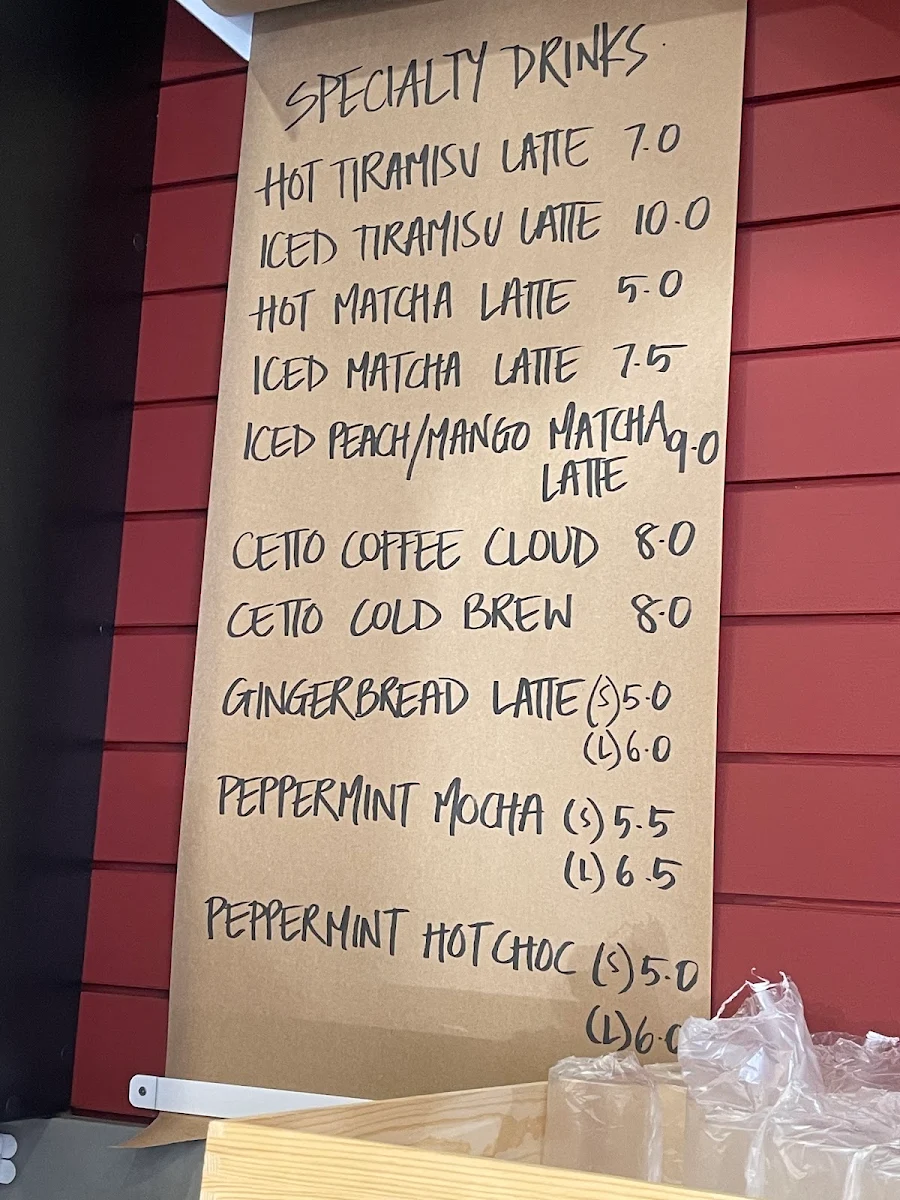 SPECIALTY DRINKS
HOT TIRAMISU LATTE 7.0
ICED TIRAMISU LATTE 10.0
HOT MATCHA LATTE 5.0
ICED MATCHA LATTE 7.5
ICED PEACH/MANGO MATCHA 9.0
LATTE
CETTO COFFEE CLOUD 8.0
CETTO COLD BREW 8.0
GINGERBREAD LATTE (S) 5.0
(L) 6.0
PEPPERMINT MOCHA (S) 5.5
(L) 6.5
PEPPERMINT HOT CHOC (S) 5.0
(L) 6.0